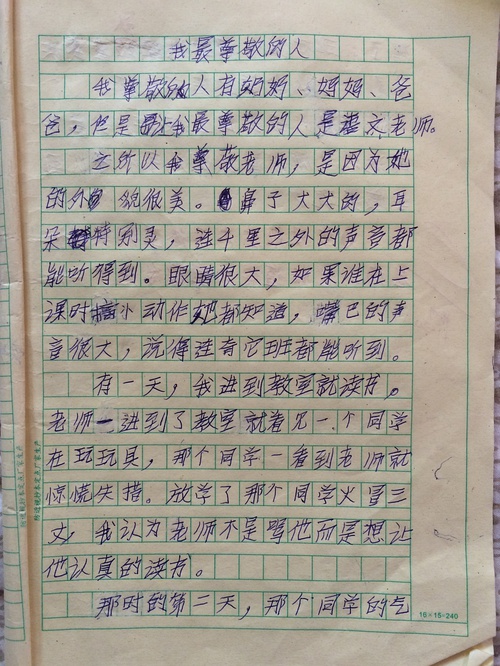 我最尊敬的人
我尊敬的人有奶奶、妈妈、爸
爸，但是让我最尊敬的人是语文老师。
之所以我尊敬老师，是因为她
的外貌很美。鼻子大大的，耳
朵特别灵，连千里之外的声音都
能听得到。眼睛很大，如果谁在上
课时搞小动作她都知道，嘴巴的声
音很大，说得连奇它班都能听到。
有一天，我进到教室就读书。
老师一进到了教室就看见一个同学
在玩玩具，那个同学一看到老师就
惊慌失措。放学了那个同学火冒三
丈，我认为老师不是骂他而是想让
他认真的读书。
那时的第二天，那个同学的气
16×15=240